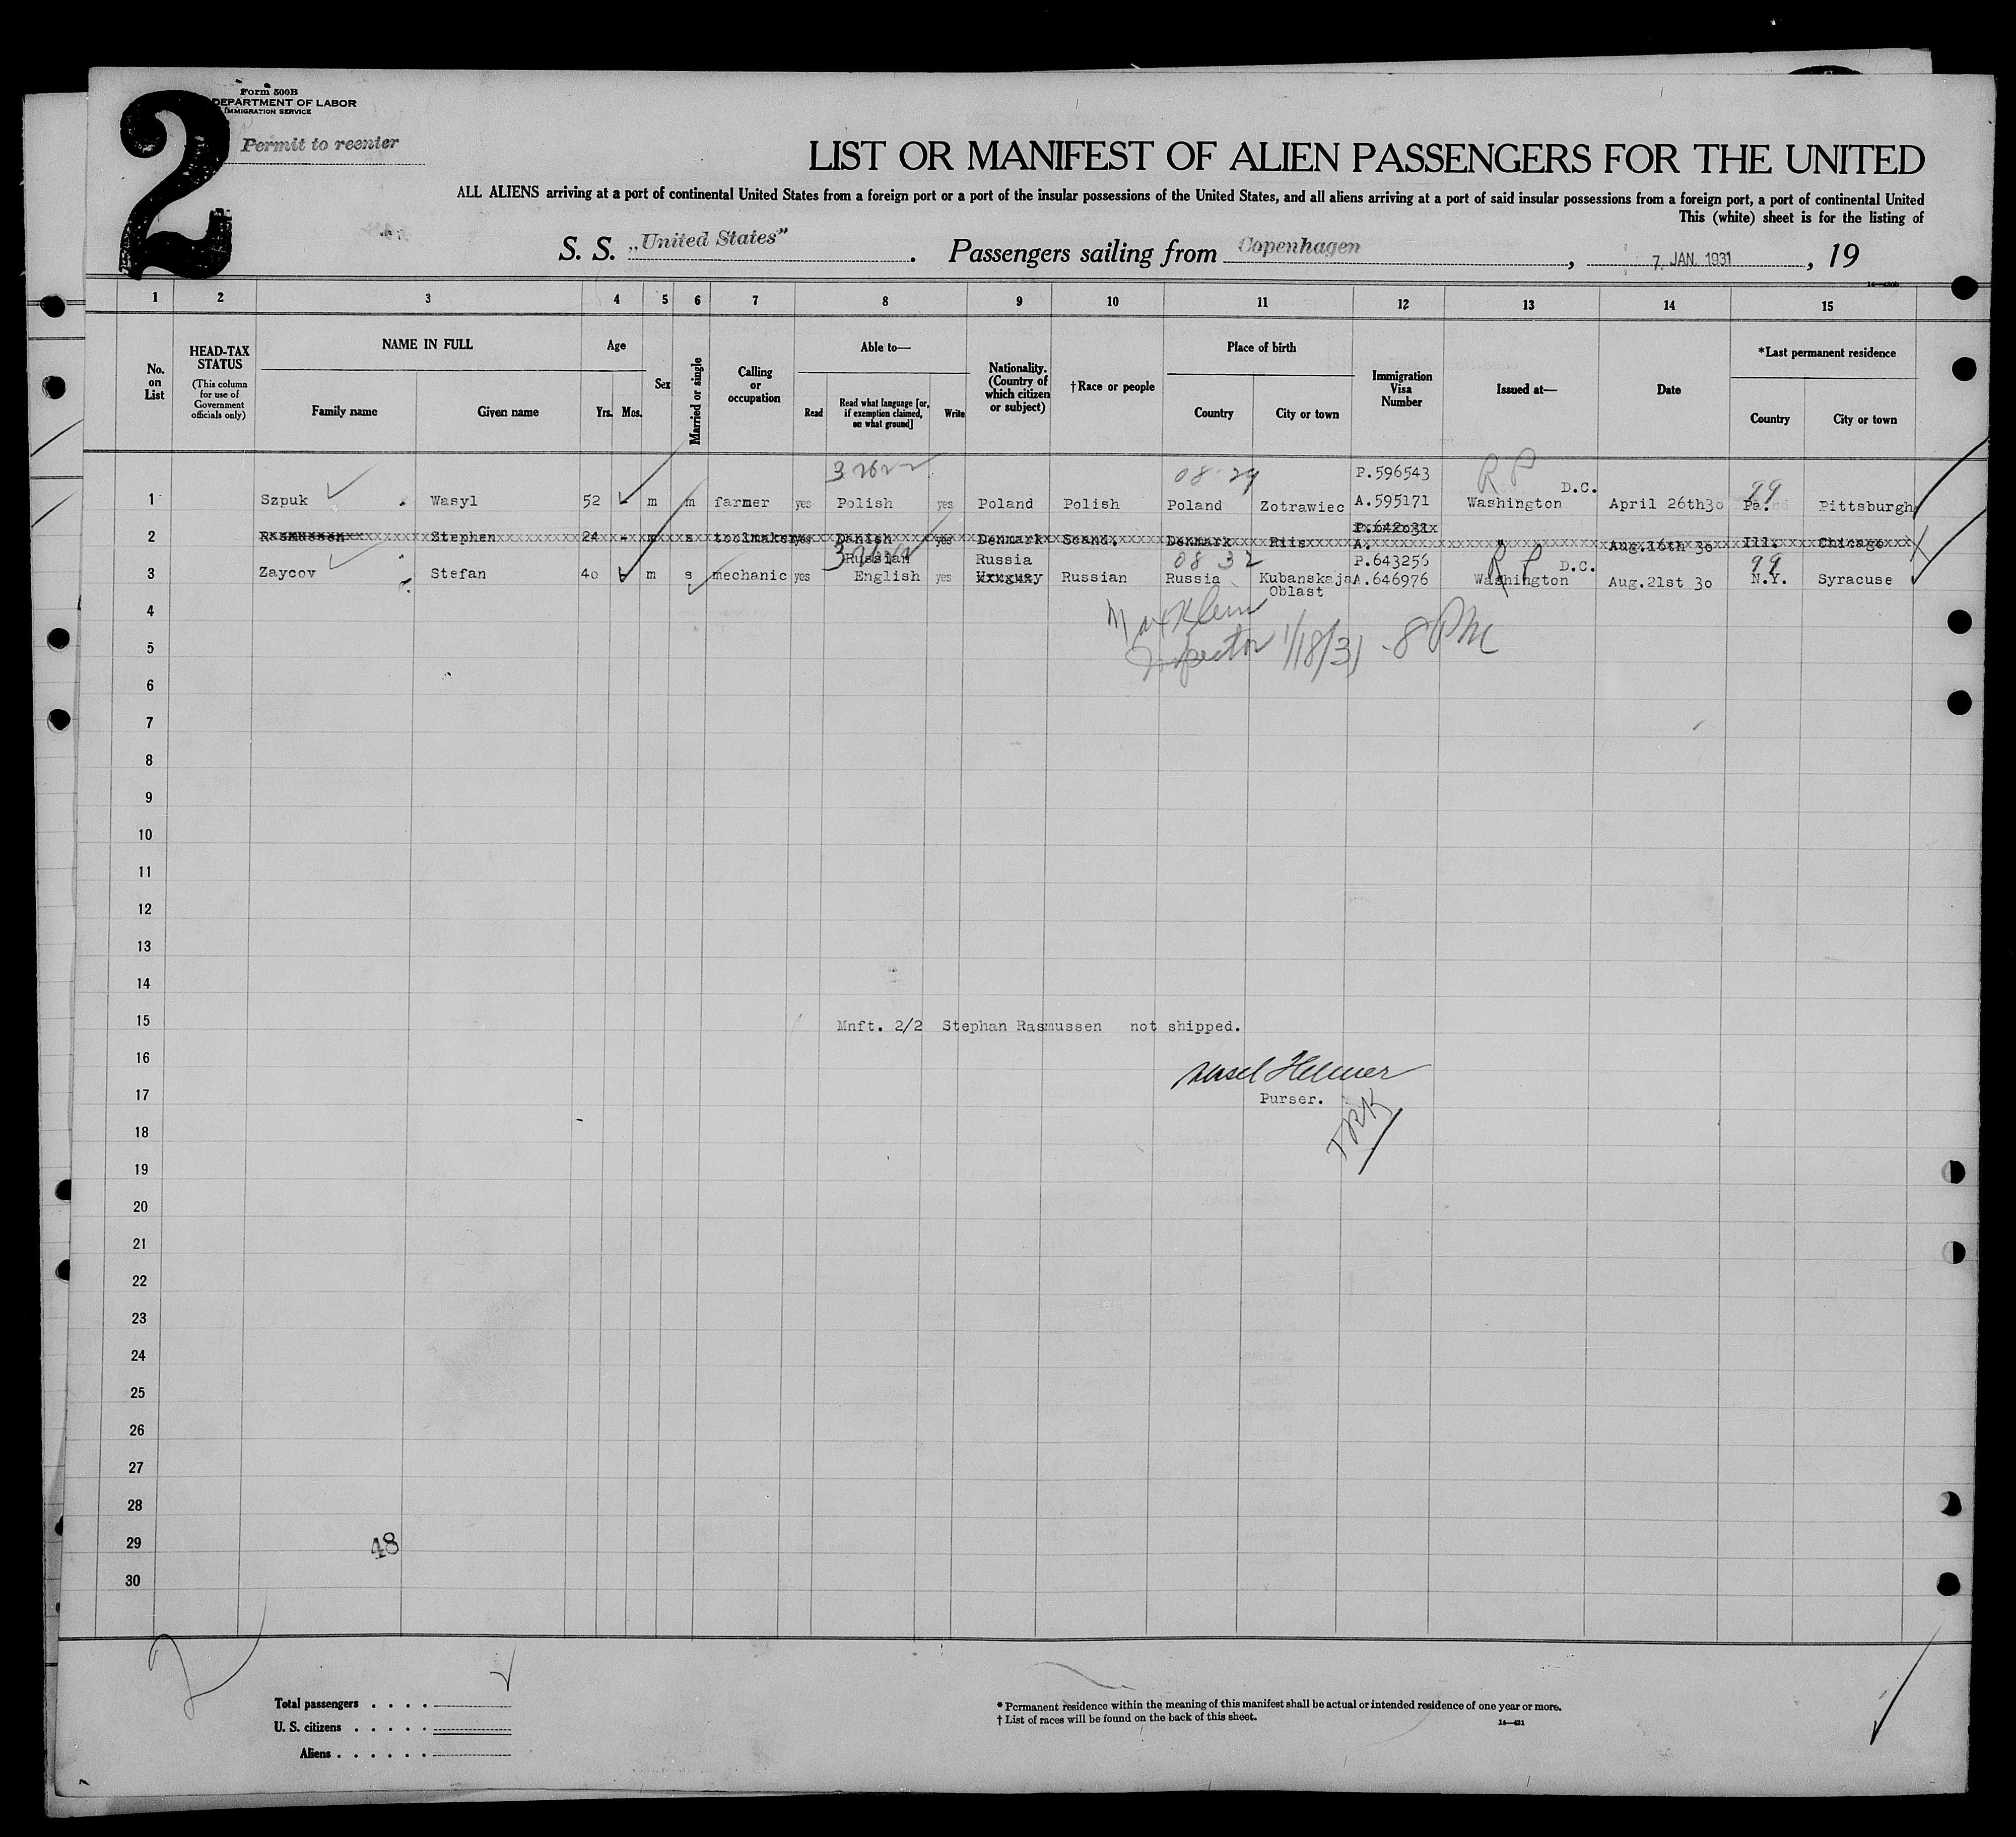 2
Form 500B
DEPARTMENT OF LABOR
IMMIGRATION SERVICE
Permit to reenter
LIST OR MANIFEST OF ALIEN PASSENGERS FOR THE UNITED
ALL ALIENS arriving at a port of continental United States from a foreign port or a port of the insular possessions of the United States, and all aliens arriving at a port of said insular possessions from a foreign port, a port of continental United
This (white) sheet is for the listing of
S. S. „United States". Passengers sailing from Copenhagen, 7. JAN. 1931, 19
1 2 3 4 5 6 7 8 9 10 11 12 13 14 15
No. on List
HEAD-TAX STATUS (This column for use of Government officials only)
NAME IN FULL
Family name Given name
Age
Yrs. Mos.
Sex
Married or single
Calling or occupation
Able to—
Read Read what language [or, if exemption claimed, on what ground] Write
Nationality. (Country of which citizen or subject)
†Race or people
Place of birth
Country City or town
Immigration Visa Number
Issued at—
Date
*Last permanent residence
Country City or town
08 29 P.596543 R P D.C. 99
1 Szpuk Wasyl 52 m m farmer yes Polish yes Poland Polish Poland Zotrawiec A.595171 Washington April 26th30 Pa. Pittsburgh
P.642031
2 Rasmussen Stephen 24 - m s toolmaker yes Danish yes Denmark Scand. Denmark Riis A. " " Aug.16th 30 Ill. Chicago
Russian Russia 08 32 P.643256 R P D.C. 99
3 Zaycov Stefan 40 m s mechanic yes English yes Russian Russia Kubanskaja A.646976 Washington Aug.21st 30 N.Y. Syracuse
Oblast
4
Max Klein
5
Inspector 1/18/31 - 8 PM
6
7
8
9
10
11
12
13
14
15 Mnft. 2/2 Stephan Rasmussen not shipped.
16
17 Purser.
18
19
20
21
22
23
24
25
26
27
28
29 48
30
2
Total passengers . . . .
U. S. citizens . . . . .
Aliens . . . . . .
* Permanent residence within the meaning of this manifest shall be actual or intended residence of one year or more.
† List of races will be found on the back of this sheet.
14—431